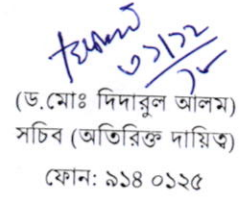 ৩১/১২
(ড.মোঃ দিদারুল আলম)
সচিব (অতিরিক্ত দায়িত্ব)
ফোন: ৯১৪ ০১২৫